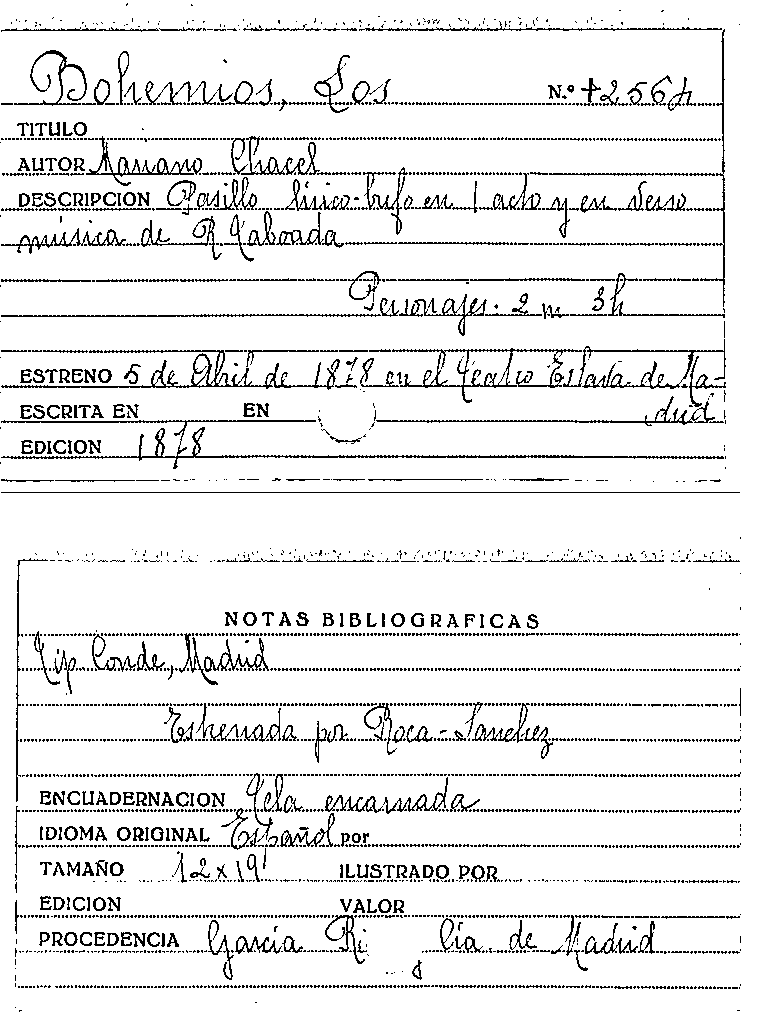 Bohemios, Los N.º +2564
TITULO
AUTOR Mariano Chacel
DESCRIPCIÓN Pasillo lírico-bufo en 1 acto y en verso
música de R. Taboada
Personajes. 2 m 3h
ESTRENO 5 de Abril de 1878 en el Teatro Eslava de Ma-
ESCRITA EN EN drid
EDICION 1878
NOTAS BIBLIOGRAFICAS
Tip Conde, Madrid
Estrenada por Roca-Sanchez
ENCUADERNACION Tela encarnada
IDIOMA ORIGINAL Español por
TAMAÑO 12 x 19 ILUSTRADO POR
EDICION VALOR
PROCEDENCIA García Ri y Cía. de Madrid